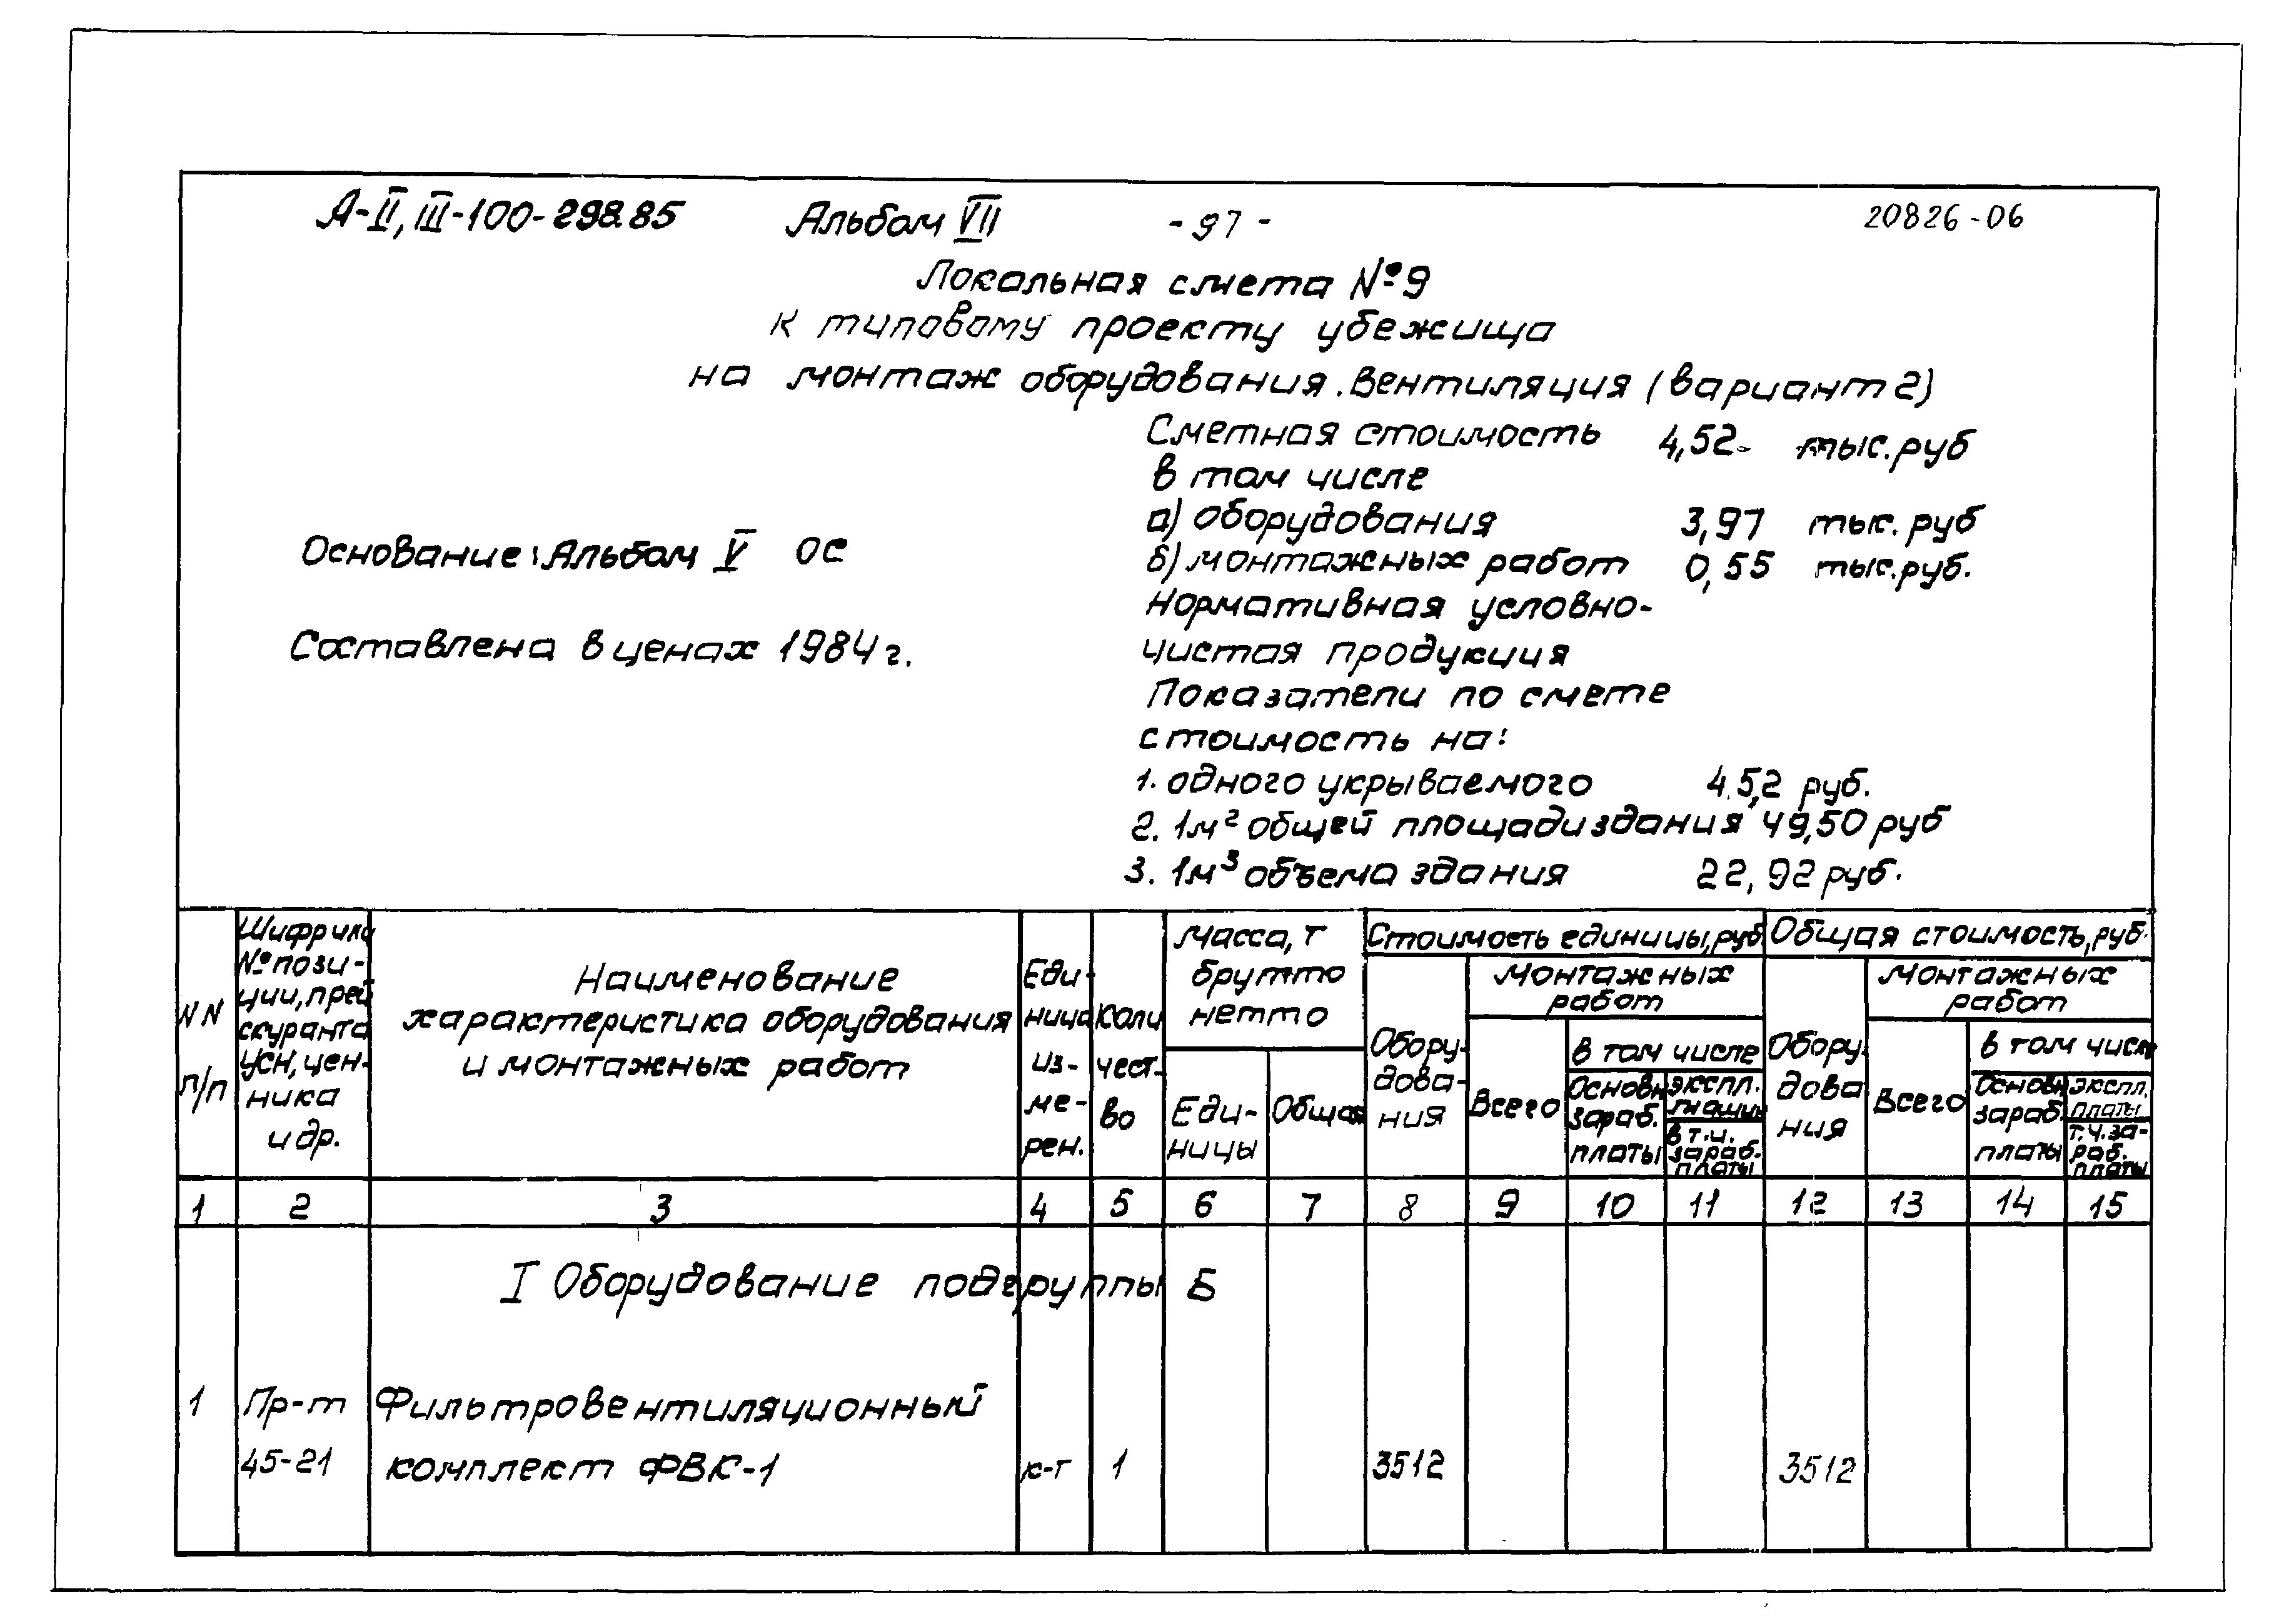 А-II, III-100-298.85 Альбом VII - 97 - 20826-06
Локальная смета №9
к типовому проекту убежища
на монтаж оборудования. Вентиляция (вариант 2)
Сметная стоимость 4,52 тыс. руб
в том числе
а) оборудования 3,97 тыс. руб
Основание: Альбом V ОС
б) монтажных работ 0,55 тыс. руб.
Нормативная условно-
чистая продукция
Составлена в ценах 1984 г.
Показатели по смете
стоимость на:
1. одного укрываемого 45,2 руб.
2. 1м² общей площади здания 49,50 руб
3. 1м³ объема здания 22,92 руб.
NN
п/п
Шифр и
№ пози-
ции, прей
скуранта
УСН, цен-
ника
и др.
Наименование
характеристика оборудования
и монтажных работ
Еди-
ница
из-
ме-
рен.
Коли
чест-
во
Масса, т
брутто
нетто
Еди-
ницы
Общая
Стоимость единицы, руб.
Обору-
дова-
ния
монтажных
работ
Всего
в том числе
Основн
зараб.
платы
экспл.
машин
в т.ч.
зараб.
платы
Общая стоимость, руб.
Обору-
дова
ния
монтажных
работ
Всего
в том числе
Основн
зараб.
платы
экспл.
платы
т.ч. за-
раб.
платы
1 2 3 4 5 6 7 8 9 10 11 12 13 14 15
I Оборудование подгруппы Б
1 Пр-т Фильтровентиляционный
45-21 комплект ФВК-1 к-т 1 3512 3512